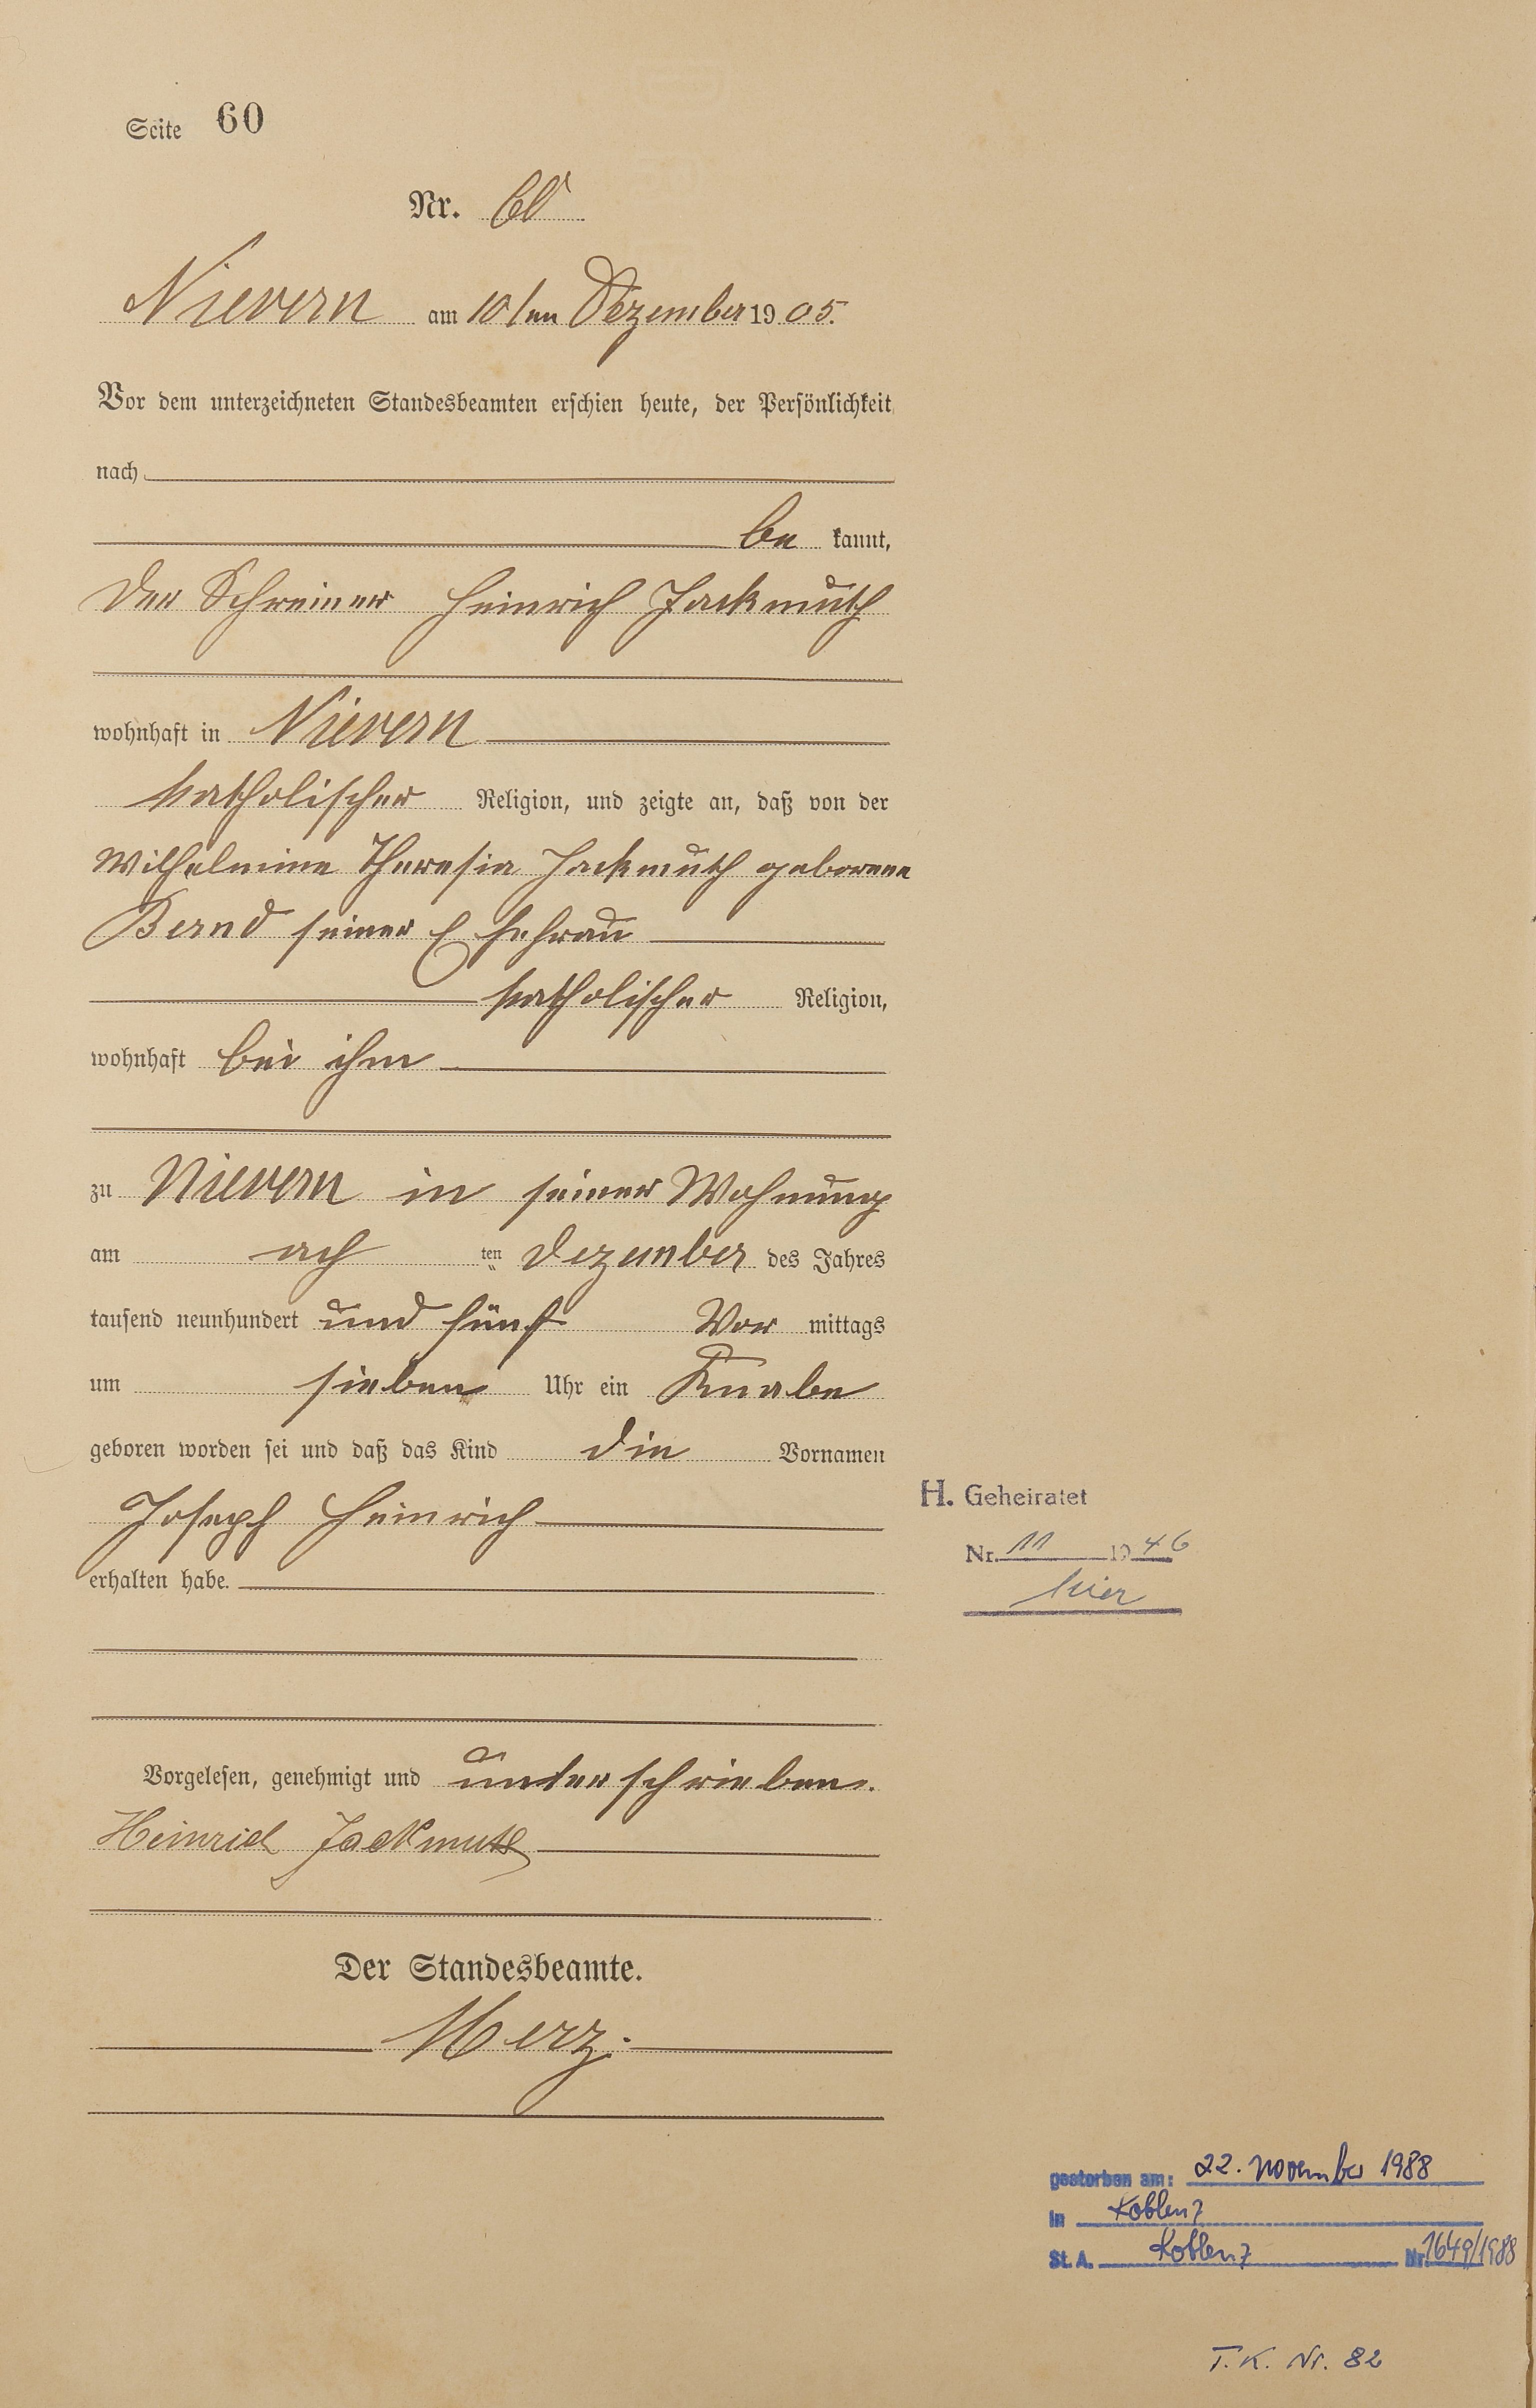 Seite 60
Nr. 60
Nievern am 10ten Dezember 1905.
Vor dem unterzeichneten Standesbeamten erschien heute, der Persönlichkeit
nach
be kannt,
der Schreiner Heinrich Jackmuth
wohnhaft in Nievern
katholischer Religion, und zeigte an, daß von der
Wilhelmine Theresia Jackmuth geborene
Bernd seiner Ehefrau
katholischer Religion,
wohnhaft bei ihm
zu Nievern in seiner Wohnung
am ach ten Dezember des Jahres
tausend neunhundert und fünf Vor mittags
um sieben Uhr ein Knabe
geboren worden sei und daß das Kind die Vornamen
Joseph Heinrich
erhalten habe.
Vorgelesen, genehmigt und unterschrieben.
Heinrich Jackmuth
Der Standesbeamte.
Merz.
H. Geheiratet
Nr. 11 1946
hier
gestorben am: 22. November 1988
in Koblenz
St.A. Koblenz Nr. 1649/1988
T.K. Nr. 82